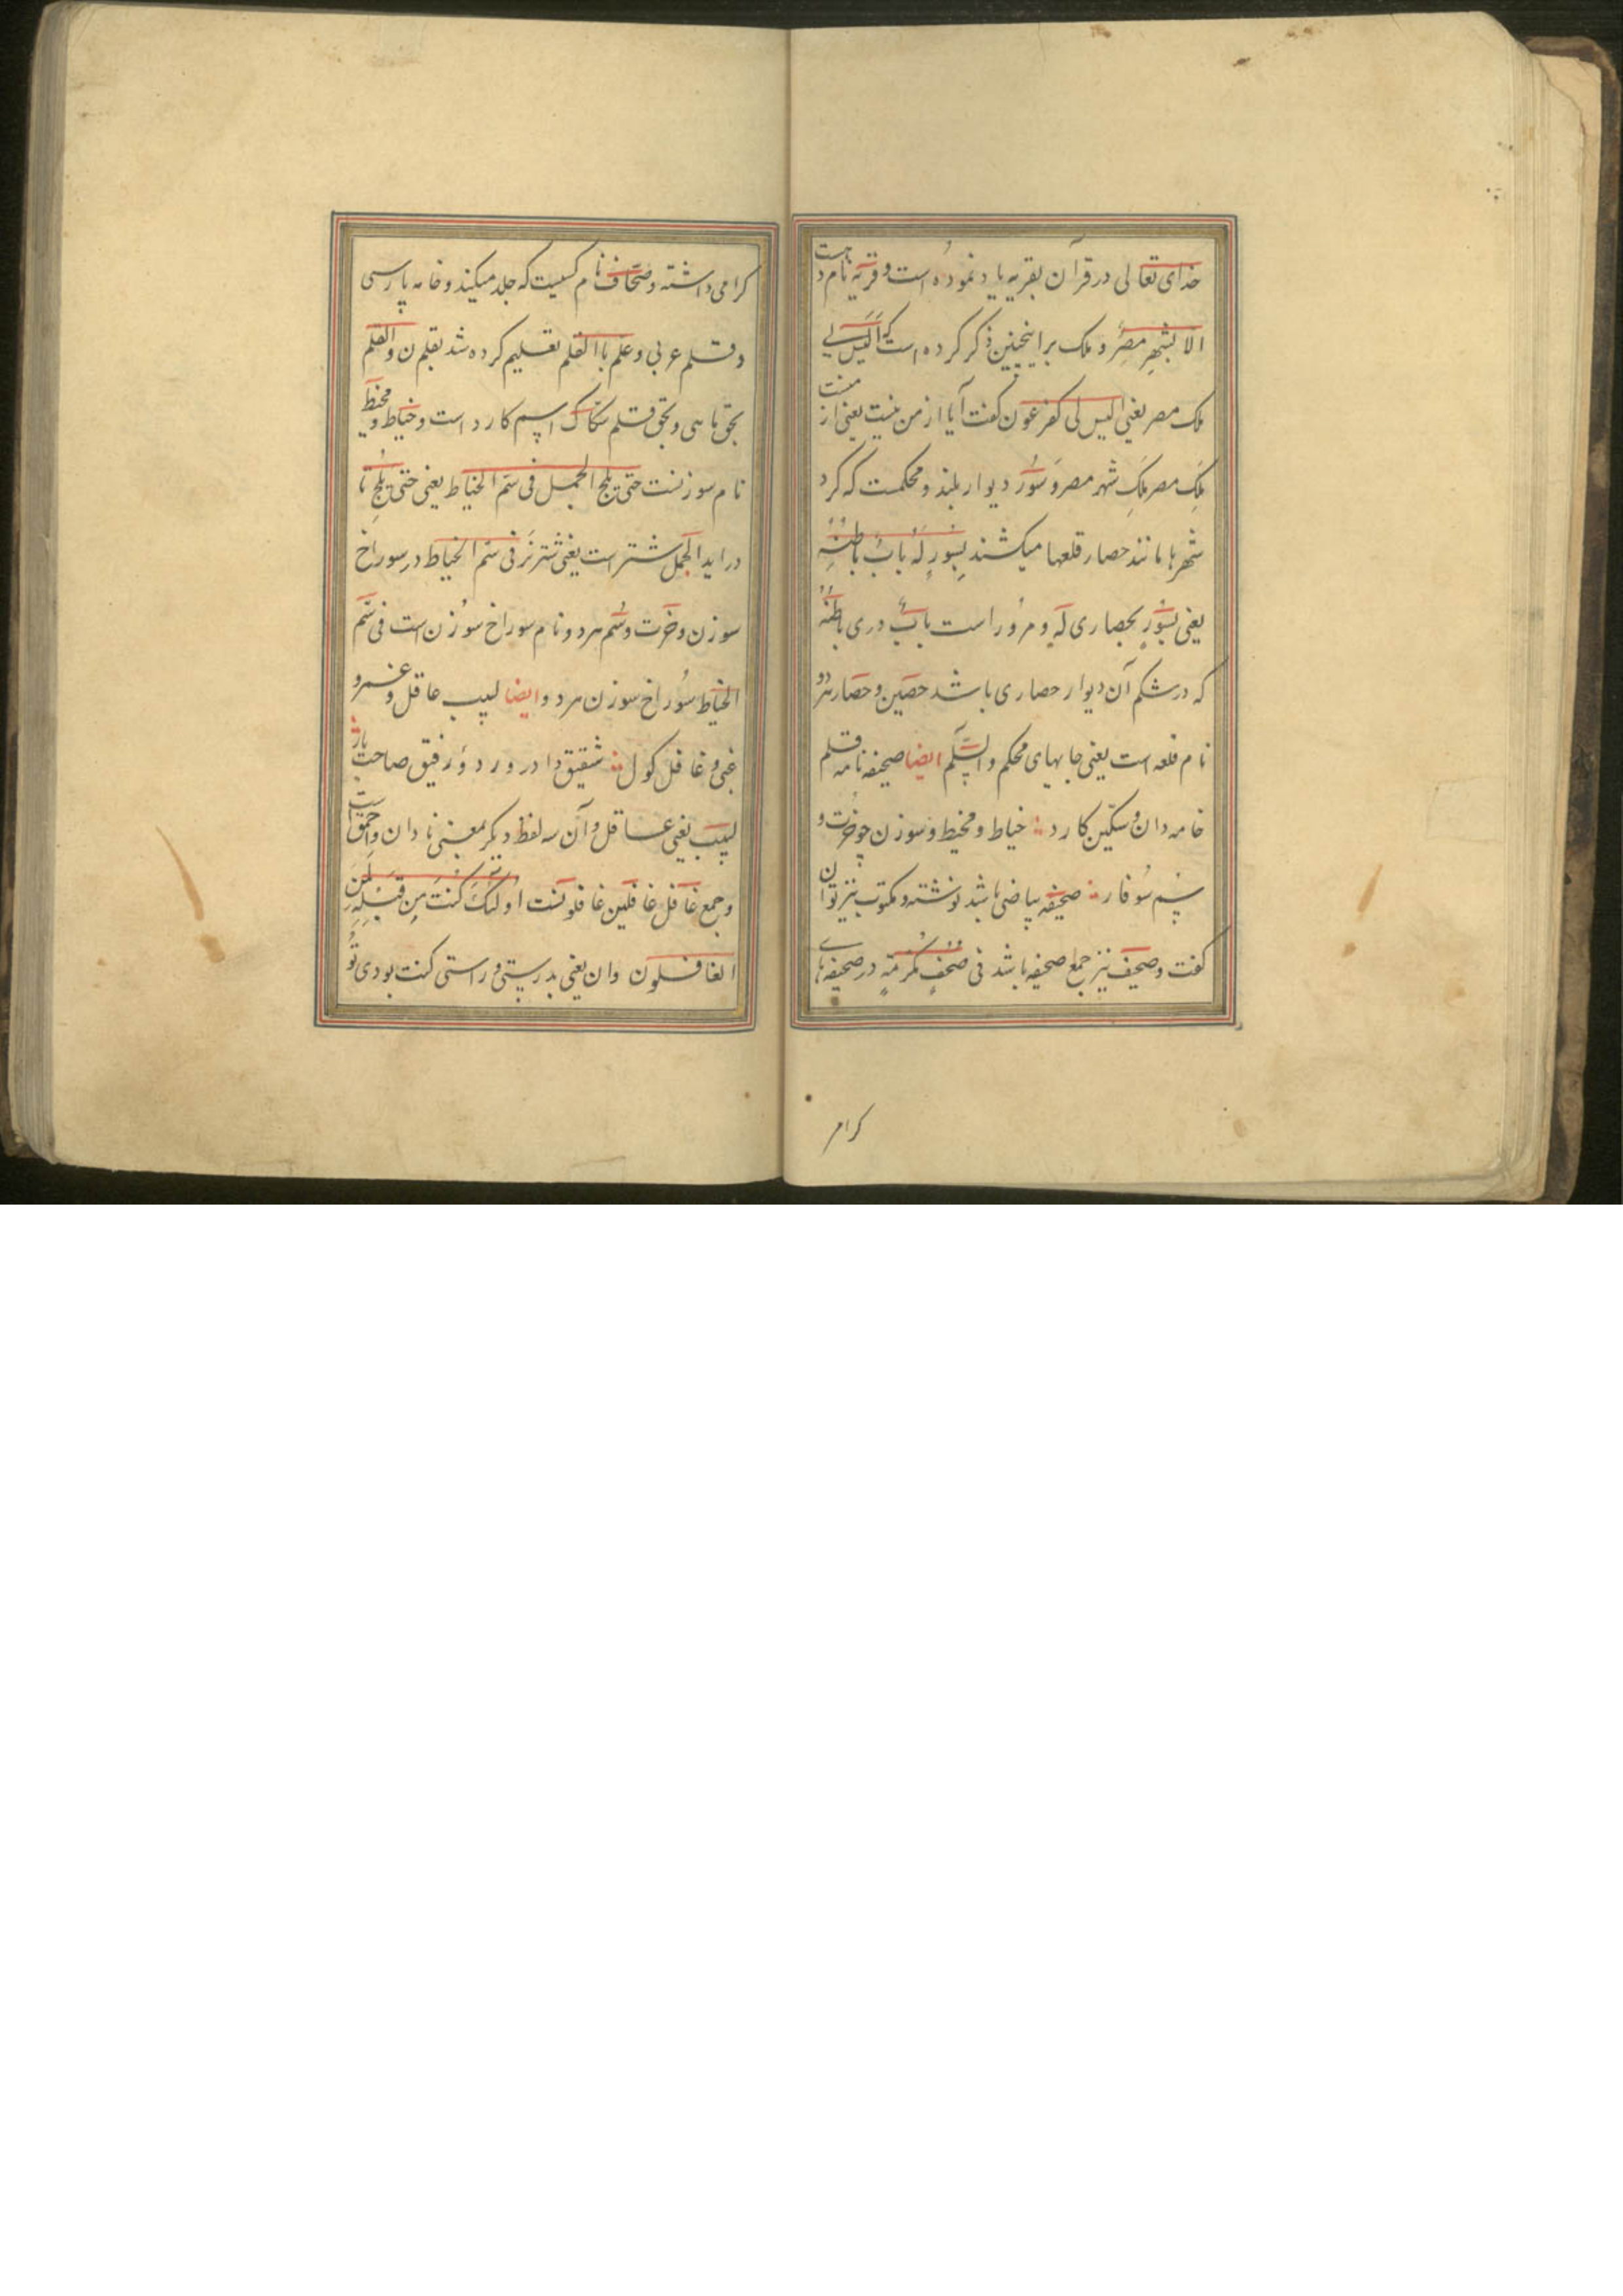 خدای تعالی در قرآن بقریه یاد نموده است و قریه نام دهست
الا بشهر مصر و ملک برا اینچنین ذکر کرده است که الیس لی
ملک مصر یعنی الیس لی کفر عون کفت آیا از من نیست یعنی از منست
ملک مصر ملک شهر مصر و سور دیوار بلند و محکمست که کرد
شهرها مانند حصار قلعها میکشند بسور له باب باطنه
یعنی بسور بحصاری له و مرورا است باب دری باطنه
که در شکم آن دیوار حصاری باشد حصین و حصار هردو
نام قلعه است یعنی جایهای محکم و السلم ایضا صحیفه نامه قلم
خامه دان و سکین کارد خیاط و مخیط و سوزن چو خرت و
سم سوفار صحیفه بیاضی باشد نوشته و مکتوب نیز توان
کفت و صحیف نیز جمع صحیفه باشد فی صحف مکرمة در صحیفه های
کرام
کرامی داشته و صحاف نام کسیست که جلد میکند و خامه پارسی
و قلم عربی و علم باالقلم تعلیم کرده شد بقلم ن والقلم
بحق ماهی و بحق قلم سکاک اسم کارد است و خیاط و مخیط
نام سوزنست حتی یلج الجمل فی سم الخیاط یعنی حتی یلج تا
دراید الجمل شتر است یعنی شتر نر فی سم الخیاط در سوراخ
سوزن و خرت و سم هردو نام سوراخ سوزن است فی سم
الخیاط سوراخ سوزن هردو ایضا لبیب عاقل و غمرو
غبی و غافل کول شقیق دادر و رد و رفیق صاحب یار
لبیب یعنی عاقل و آن سه لفظ دیکر بمعنی نادان و احمق است
و جمع غافل غافلین غافلونست اولئک کنت من قبله لمن
الغافلون وان یعنی بدرستی و راستی کنت بودی تو